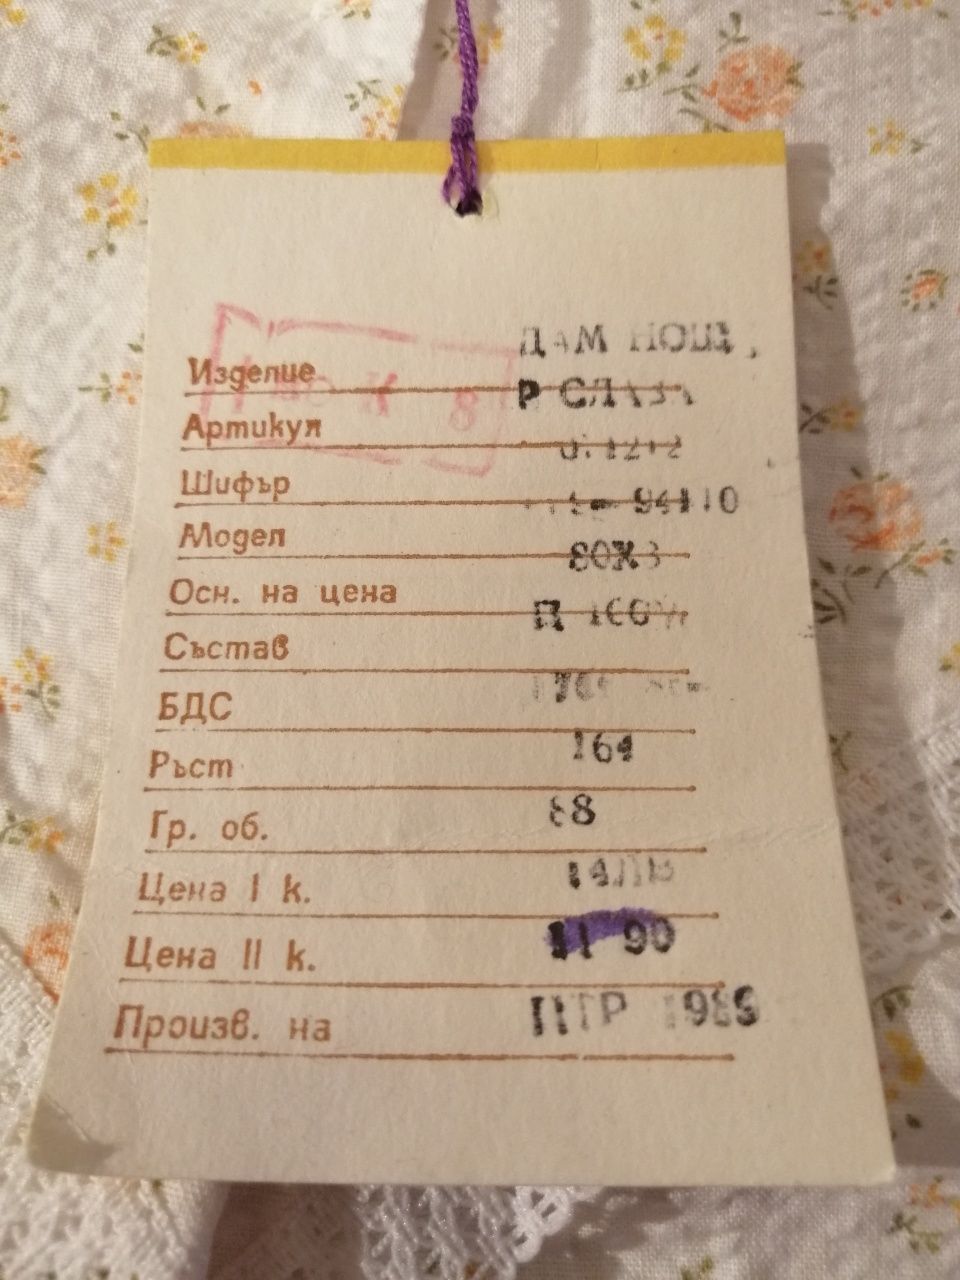 ДАМ НОЩ,
Изделие
Р СЛАВА
Артикул
Шифър 94110
Модел 80Ж3
Осн. на цена П 100%
Състав
БДС
Ръст 164
Гр. об. 88
Цена I к. 14ЛВ
Цена II к. 11 90
Произв. на ПТР 1989